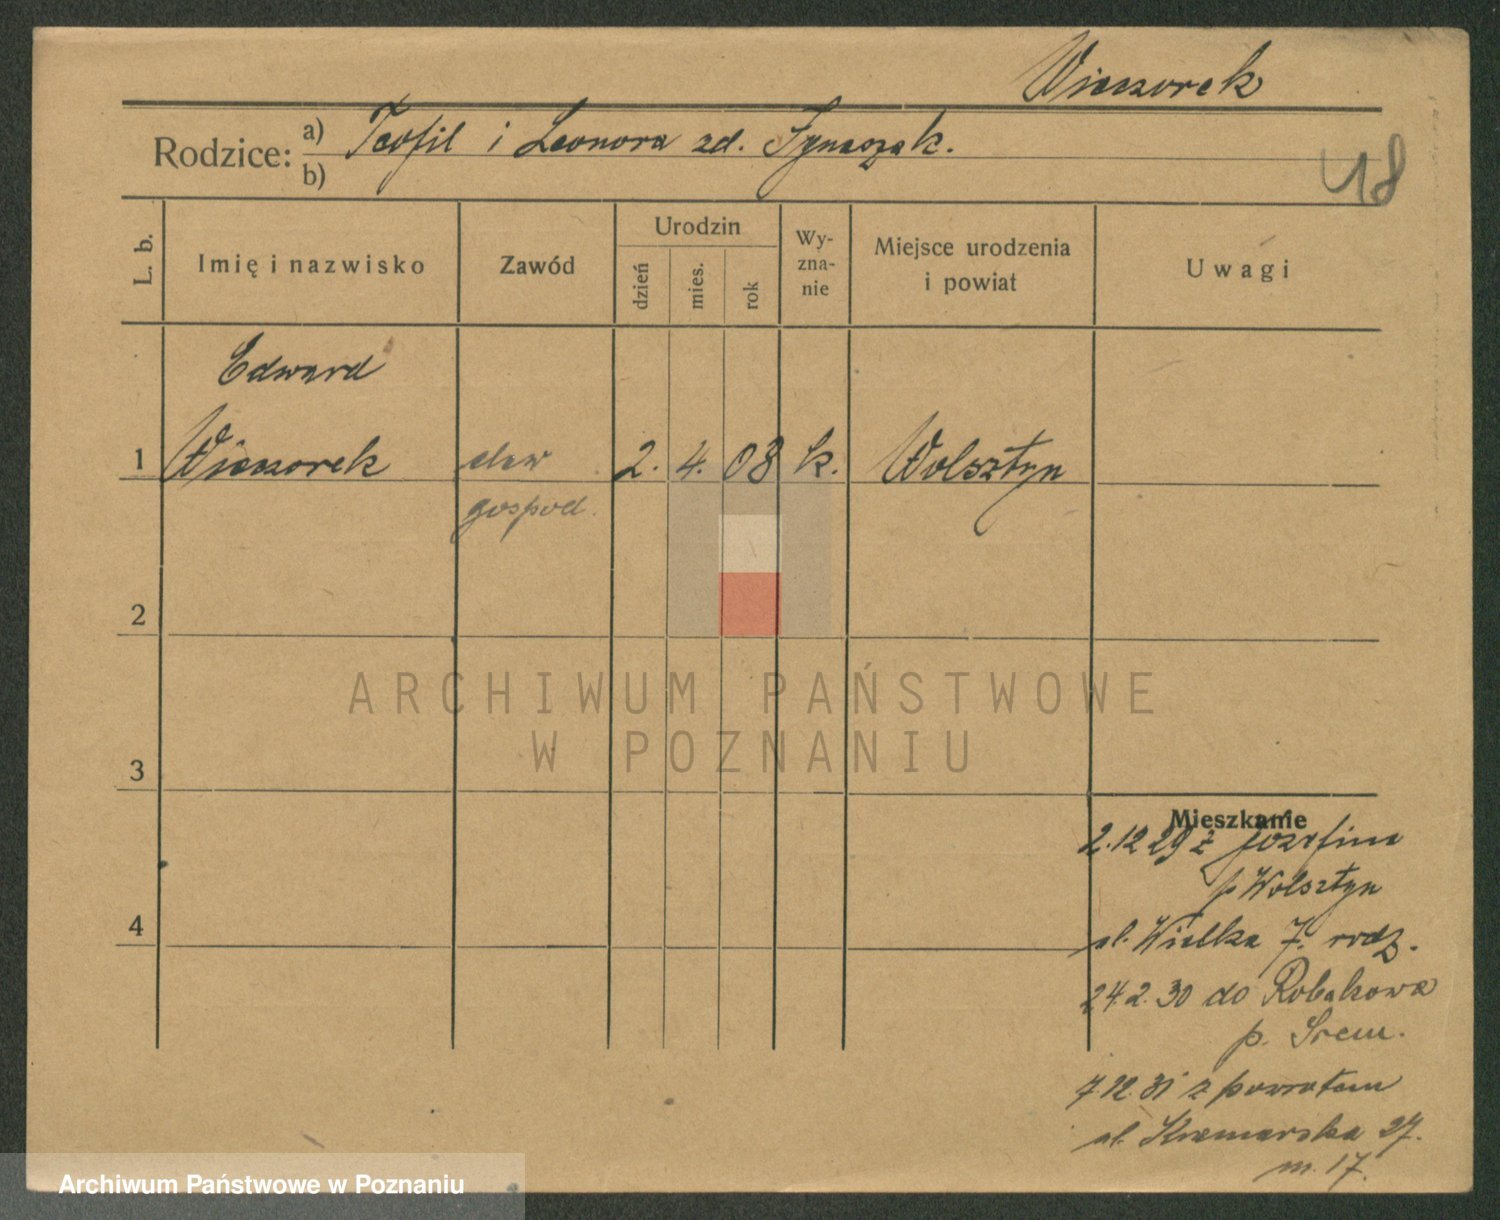 Wieczorek
Rodzice:
a) Teofil i Leonora zd. Ignaszak.
b)
48
L. b.
Imię i nazwisko
Zawód
Urodzin
dzień
mies.
rok
Wy-
zna-
nie
Miejsce urodzenia
i powiat
Uwagi
Edward
1 Wieczorek elew 2. 4. 08 k. Wolsztyn
gospod.
2
3
4
ARCHIWUM PAŃSTWOWE
W POZNANIU
Mieszkanie
2.12 29 z Józefina
p Wolsztyn
ul. Wielka 7. rodz.
24.2.30 do Robakowa
p. Srem.
7.12.31 z powrotem
ul. 27.
m. 17.
Archiwum Państwowe w Poznaniu